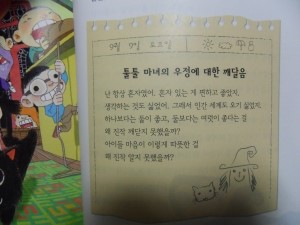 9월 9일 토요일
툴툴 마녀의 우정에 대한 깨달음
난 항상 혼자였어. 혼자 있는 게 편하고 좋았지.
생각하는 것도 싫었어. 그래서 인간 세계도 오기 싫었지.
하나보다는 둘이 좋고, 둘보다는 여럿이 좋다는 걸
왜 진작 깨닫지 못했을까?
아이들 마음이 이렇게 따뜻한 걸
왜 진작 알지 못했을까?